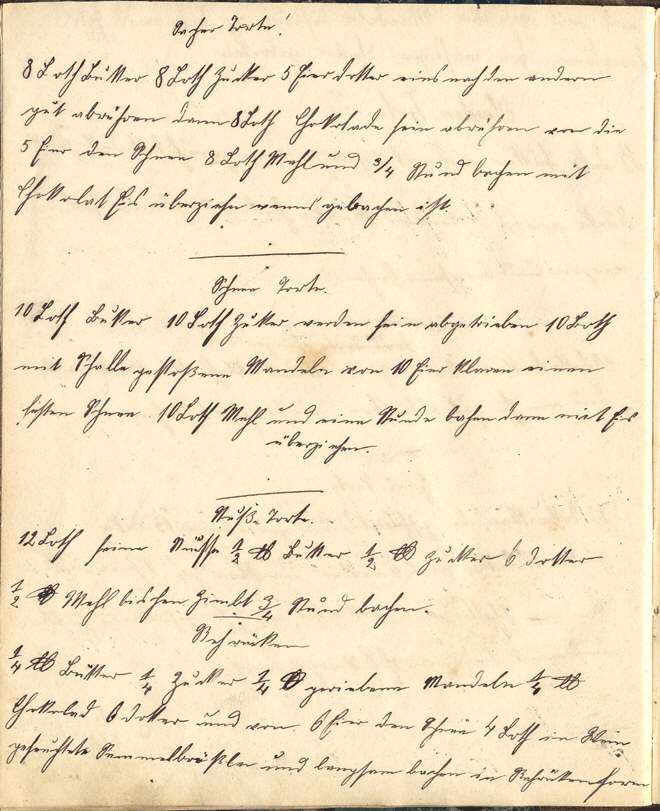 Sacher Torte!
8 Loth Butter 8 Loth Zucker 5 Eierdotter eins nach den andern
gut abrühren dann 8 Loth Chokolade fein abrühren von die
5 Eier den Schnee 8 Loth Mehl und 3/4 Stund bachen mit
Chokolat Eis überziehn wenns gebachen ist.
Schnee Torte.
10 Loth Butter 10 Loth Zucker werden fein abgetrieben 10 Loth
mit Schalle gestoßene Mandeln von 10 Eier Klaren einen
festen Schnee. 10 Loth Mehl und eine Stunde bachen dann mit Eis
überziehen.
Nuß-Torte.
12 Loth feine Nüsse 1/2 ℔ Butter 1/2 ℔ Zucker 6 Dotter
1/2 ℔ Mehl bischen Zimbt 3/4 Stund bachen.
Rehrücken
1/4 ℔ Butter 1/4 Zucker 1/4 ℔ geriebene Mandeln 1/4 ℔
Chokolad 6 Dotter und von 6 Eier den Schnee 4 Loth in Wein
gefeuchtete Semmelbrößler und langsam bachen in Rehrückenform